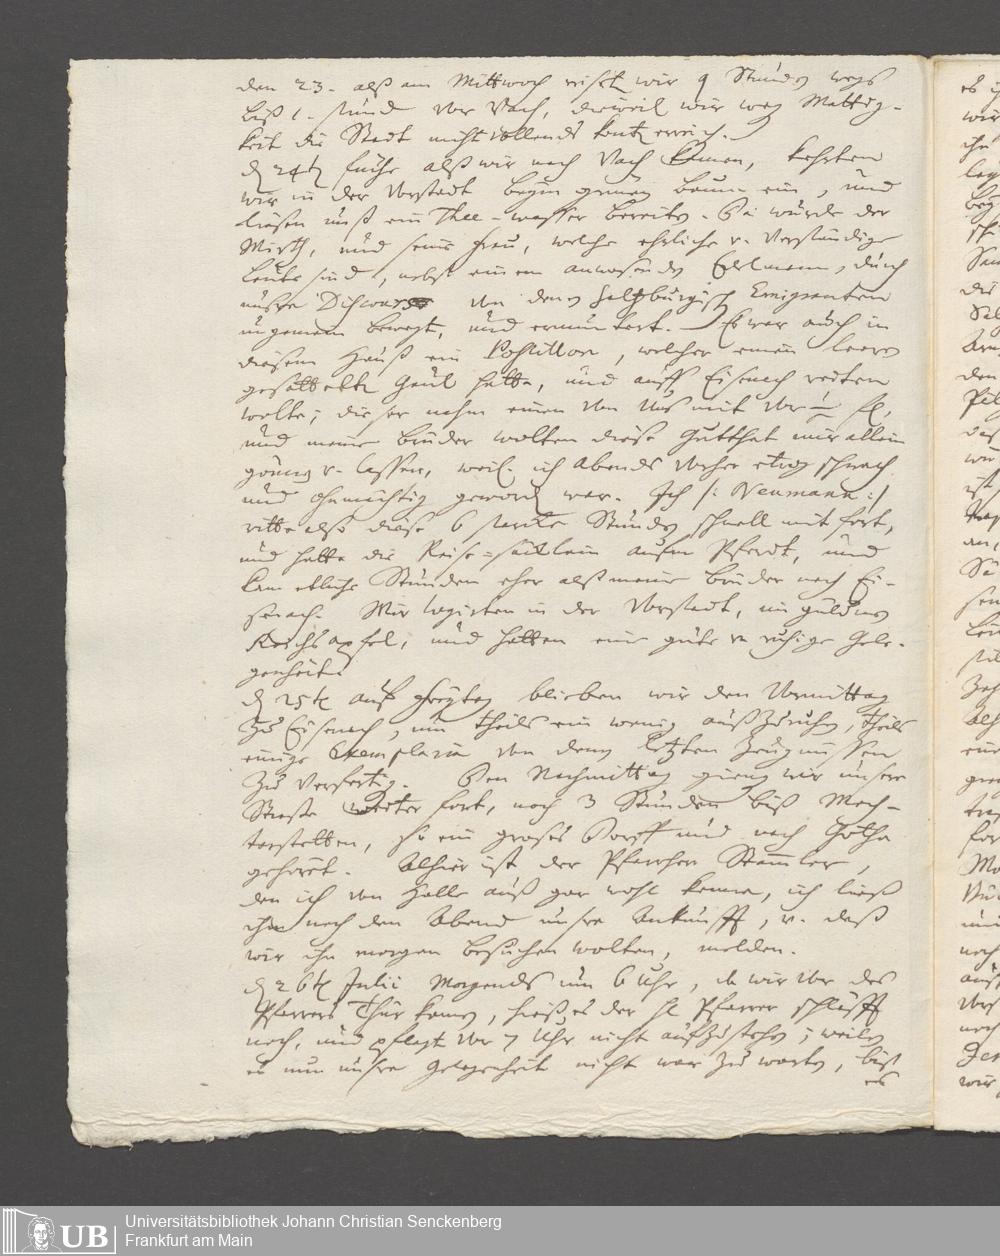 den 23. alß am Mittwoch reiseten wir 9 Stunden wegs
biß 1. stund vor Vach, dieweil wir weg Mattig-
keit die Stadt nicht vollends konten erreich.
d 24t frühe alß wir nach Vach kamen, kehrten
wir in der Vorstadt beym grünen Baum ein, und
liesen uns ein Thee-wasser bereiten. Da wurde der
Wirth, und seine Frau, welche ehrliche v. verständige
Leute sind, nebst einem anwesenden Edelmann, durch
unsre Discourse von denen Saltzburgisch Emigranten
ungemein bewegt, und ermuntert. Es war auch in
diesem Hauß ein Postillon, welcher einen leeren
gesattelten Gaul hatte, und auff Eisenach reiten
wolte; dieser nahm einen von uns mit vor fl,
und meine Brüder wolten diese Gutthat mir allein
gönnen v. lassen, weil ich Abends vorher etwas schwach
und ohnmächtig geword war. Ich /: Neumann :/
ritte also diese 6 starcke Stunden schnell mit fort,
und hatte die Reise-säcklein aufm Pferdt, und
kam etliche Stunden eher alß meine Brüder nach Ei-
senach. Wir logirten in der Vorstadt, im güldnen
Reichsapfel, und hatten eine gute v. ruhige Gele-
genheit.
d 25t auf Freytag blieben wir den Vormittag
zu Eisenach, um theils ein wenig außzuruhen, theils
einige Exemplaria von denen letzten Zeugnissen
zu verfertig. Den Nachmittag gieng wir unsere
Strasse weiter fort, noch 3 Stunden biß Mech-
terstetten, so ein groses Dorff und nach Gotha
gehöret. Alhier ist der Pfarrherr Stamler,
den ich von Halle auß gar wohl kenne, ich ließ
ihm noch den Abend unsre Ankunfft, v. daß
wir ihn morgen besuchen wolten, melden.
d 26t Julii Morgends um 6 Uhr, da wir vor des
Pfarrers Thür kamen, hieß es der H. Pfarrer schlafft
noch, und pflegt vor 7 Uhr nicht aufzustehen; weilen
es nun unsre Gelegenheit nicht war zu warten, biß
es
UB
Universitätsbibliothek Johann Christian Senckenberg
Frankfurt am Main